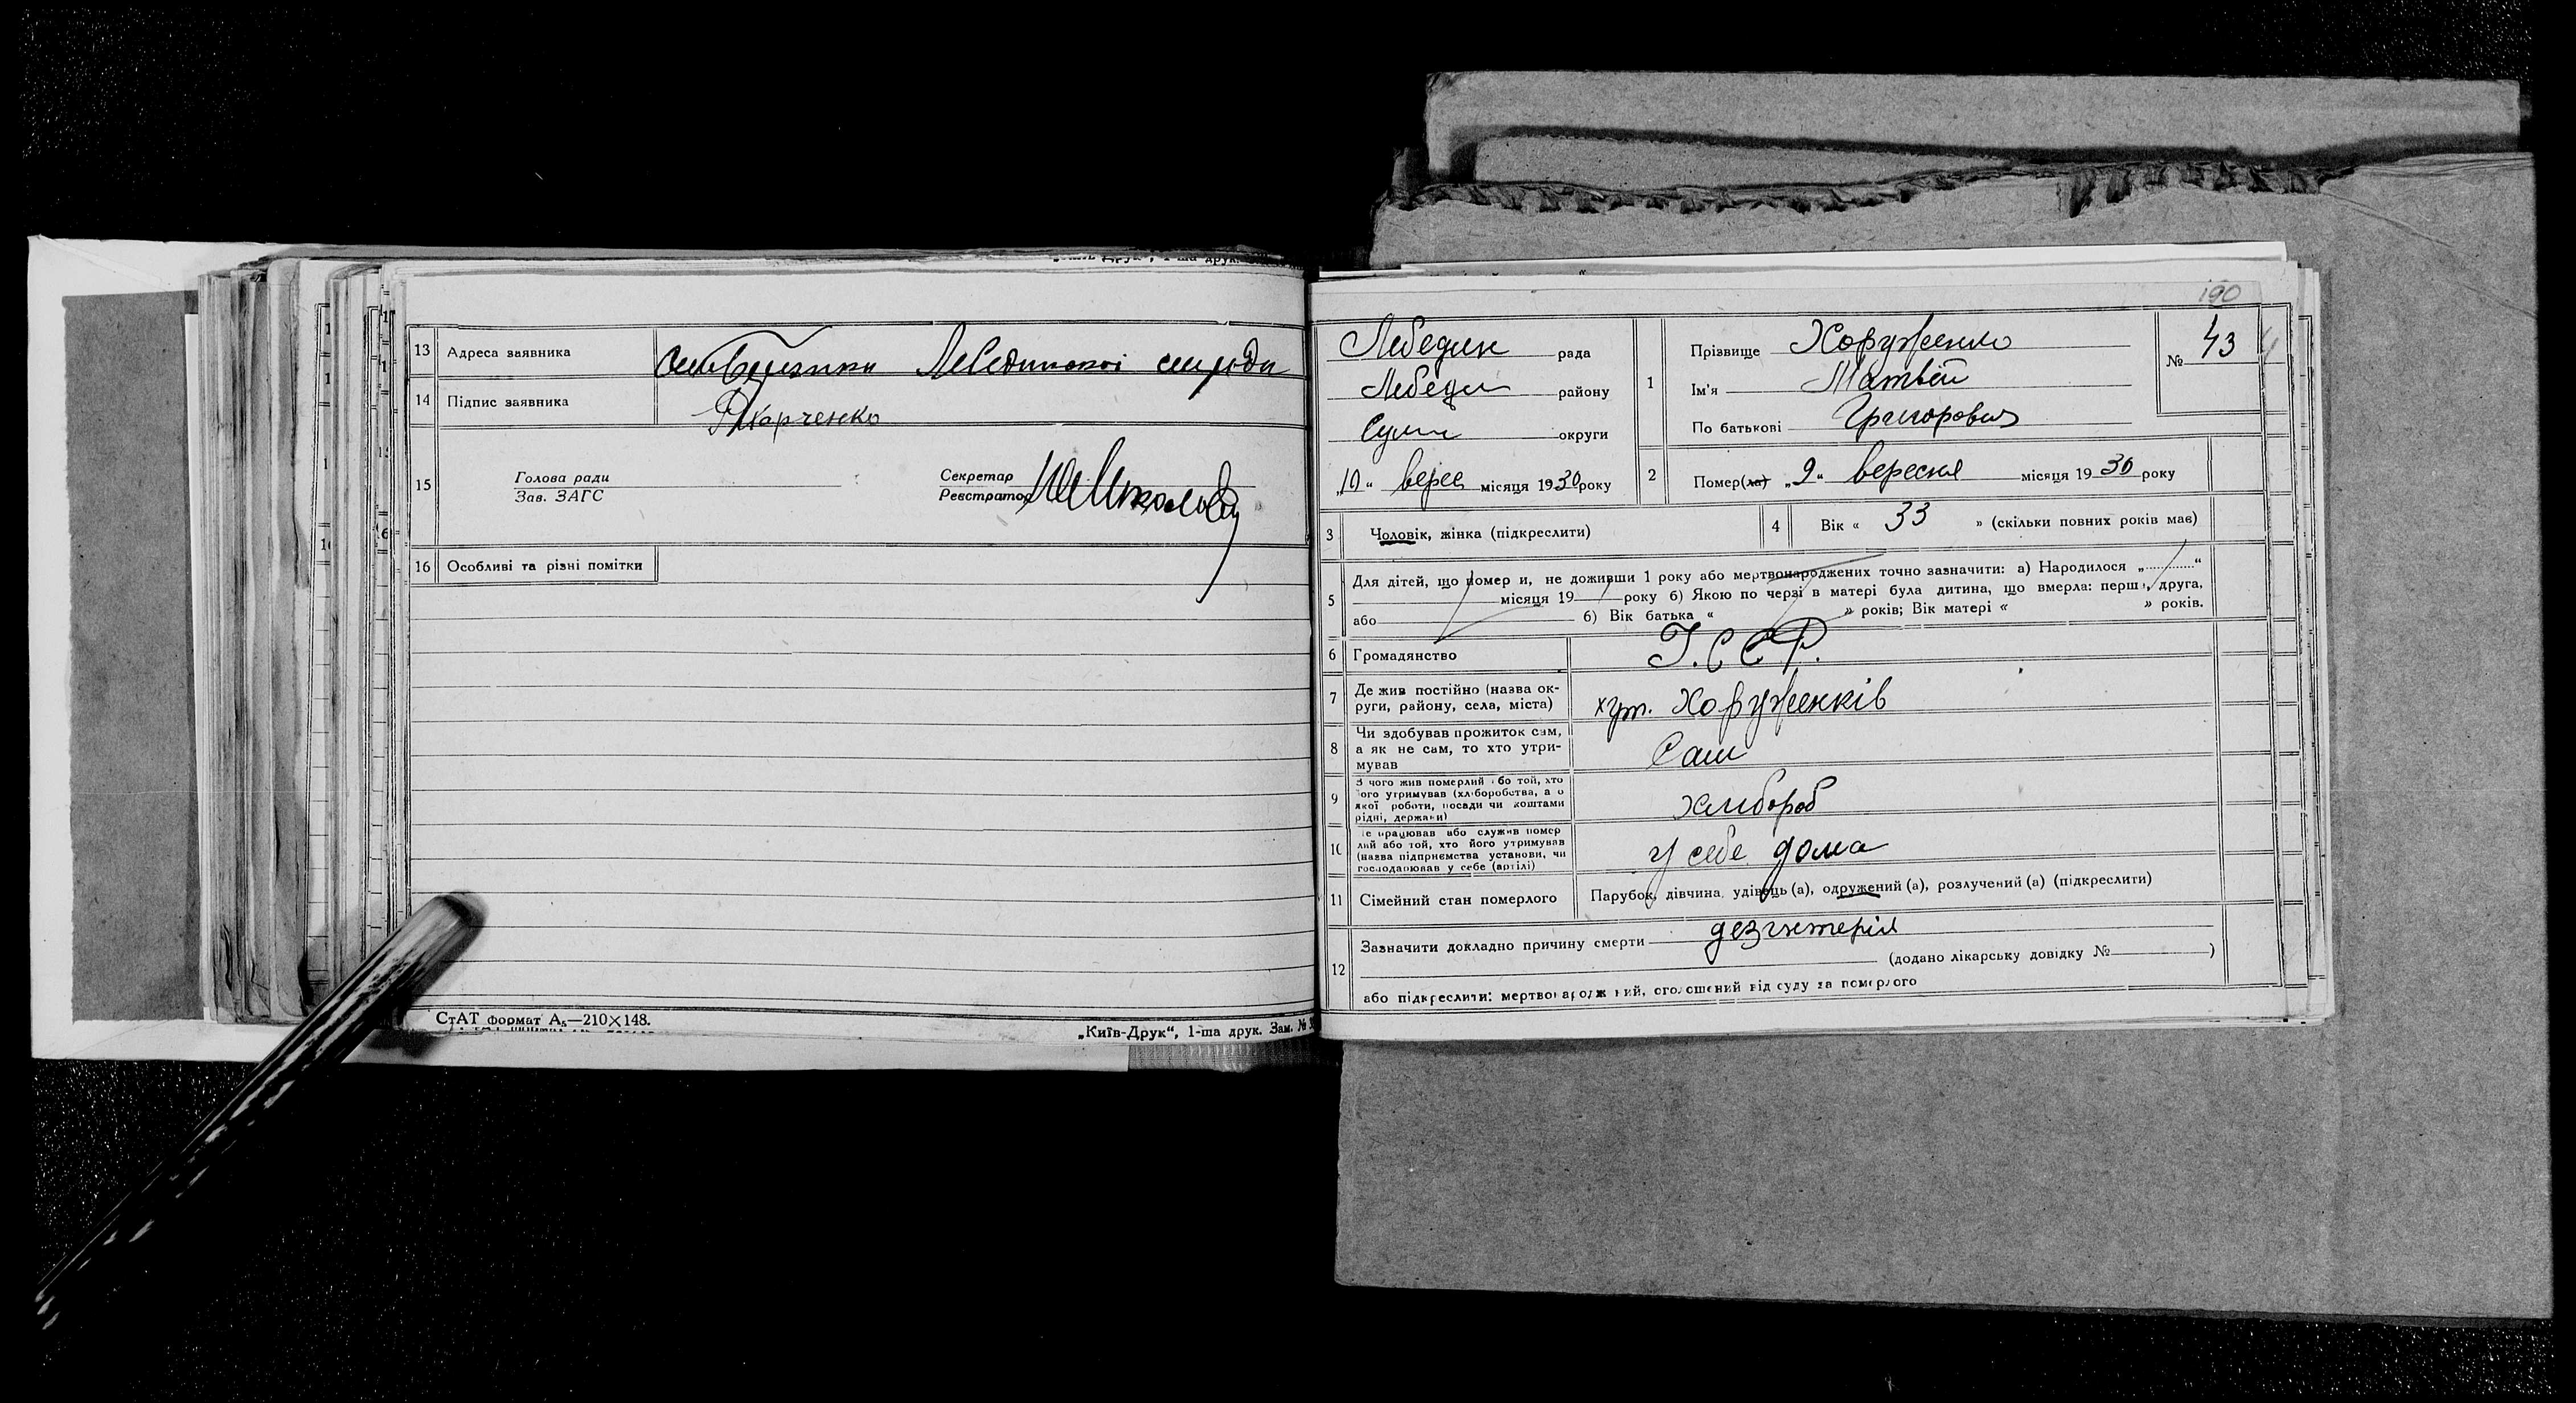 13 Адреса заявника Лебединской сирради
14 Підпис заявника Харченко
15 Голова ради Секретар
Зав. ЗАГС Реєстратор
16 Особливі та різні помітки
СтАТ формат А₅—210×148.
„Київ-Друк“, 1-ша друк. Зам. №
190
Лебедин рада
Лебедин району
Сум округи
„10“ верес місяця 1930 року
1 Прізвище Хоруженко
Ім'я Матвій
По батькові Григорович
№ 43
2 Помер(ла) „9“ вересня місяця 1930 року
3 Чоловік, жінка (підкреслити) 4 Вік « 33 » (скільки повних років має)
5 Для дітей, що помер и, не доживши 1 року або мертвонароджених точно зазначити: а) Народилося „............“
місяця 19 року б) Якою по черзі в матері була дитина, що вмерла: перша, друга,
або б) Вік батька « » років; Вік матері « » років.
6 Громадянство У.С.С.Р.
7 Де жив постійно (назва ок-
руги, району, села, міста) хут. Хоруженків
8 Чи здобував прожиток сам,
а як не сам, то хто утри-
мував Сам
9 З чого жив померлий або той, хто
його утримував (хліборобства, а о
якої роботи, посади чи коштами
рідні, держави) хлибороб
10 Де працював або служив помер
лий або той, хто його утримував
(назва підприємства установи, чи
господарював у себе (артілі) у себе дома
11 Сімейний стан померлого Парубок, дівчина, удівець (а), одружений (а), розлучений (а) (підкреслити)
12 Зазначити докладно причину смерти дезинтерія
(додано лікарську довідку № )
або підкреслити: мертвонароджений, оголошений від суду за померлого